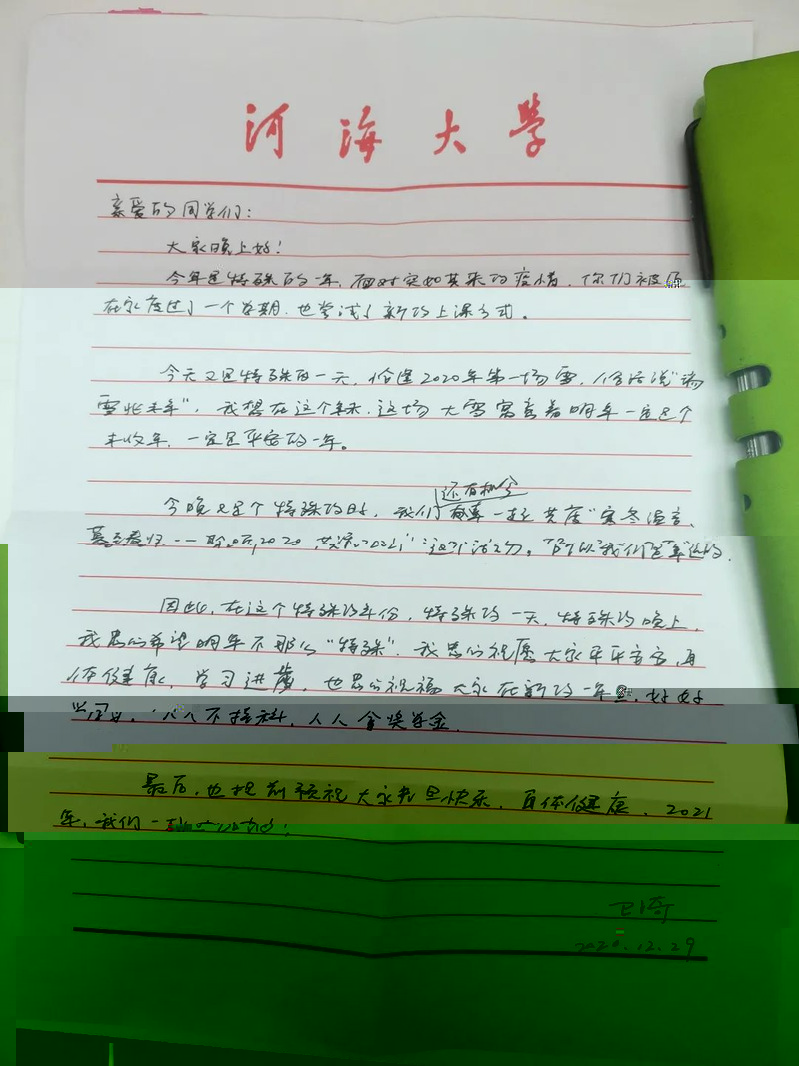 河海大学
亲爱的同学们：
大家晚上好！
今年是特殊的一年，面对突如其来的疫情，你们被
在家度过了一个学期，也尝试了新的上课方式。
今天又是特殊的一天，恰逢2020年第一场雪，俗话说"瑞
雪兆丰年"，我想在这个年末，这场大雪寓意着明年一定是个
丰收年，一定是平安的一年。
今晚又是个特殊的时刻，我们还有机会一起共度"寒冬
2020 2021"这个活动。所以我们是幸运的。
因此，在这个特殊的年份，特殊的一天，特殊的晚上，
我衷心希望明年不那么"特殊"。我衷心祝愿大家平平安安，身
体健康，学习进步，也衷心祝福大家在新的一年里，好好
学习，人人不挂科，人人拿奖学金。
最后，也提前预祝大家元旦快乐，身体健康，2021
年，我们一起
2020.12.29